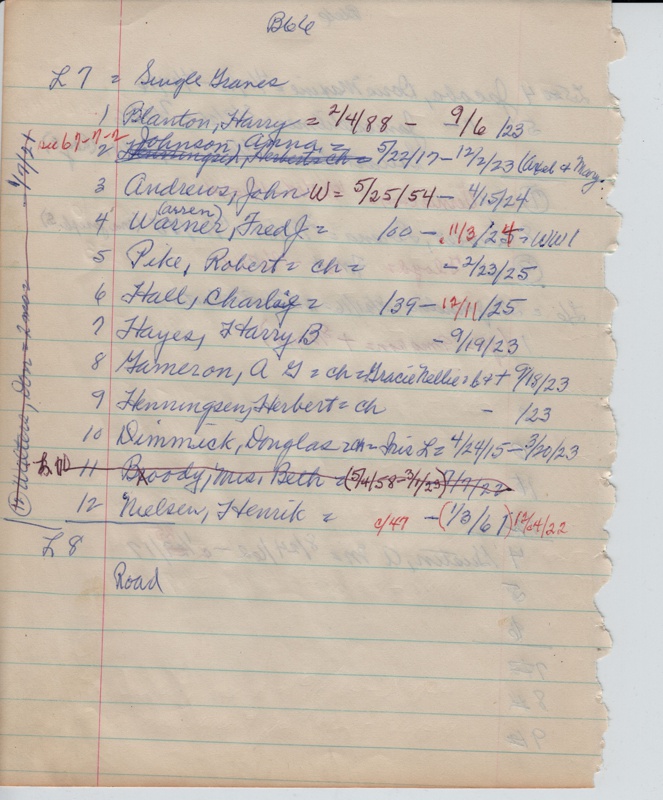 B66
L 7 = Single Graves
1 Blanton, Harry = 2/4/88 - 9/6/23
see 67-7-2
Johnson, Anna =
2 Henningsen, Herbert = ch = 5/22/17 - 12/2/23 (Axel & Mary)
3 Andrews, John W = 5/25/54 - 4/15/24
(arren)
4 Warner, Fred J. = /60 - 11/3/24 = WW1
5 Pike, Robert = ch = - 2/23/25
6 Hall, Charlie = /39 - 12/11/25
7 Hayes, Harry B - 9/19/23
8 Gameron, A G = ch = Gracie Nellie = b & + 9/18/23
9 Henningsen, Herbert = ch - /23
10 Dimmick, Douglas = ch = Iris L = 4/24/15 - 3/20/23
11 Broody, Mrs. Beth = (5/4/58 - 3/1/23)
12 Nielsen, Henrik = c/47 - (1/3/61)
L 8
Road
11 Walters, Don = 2 mos =